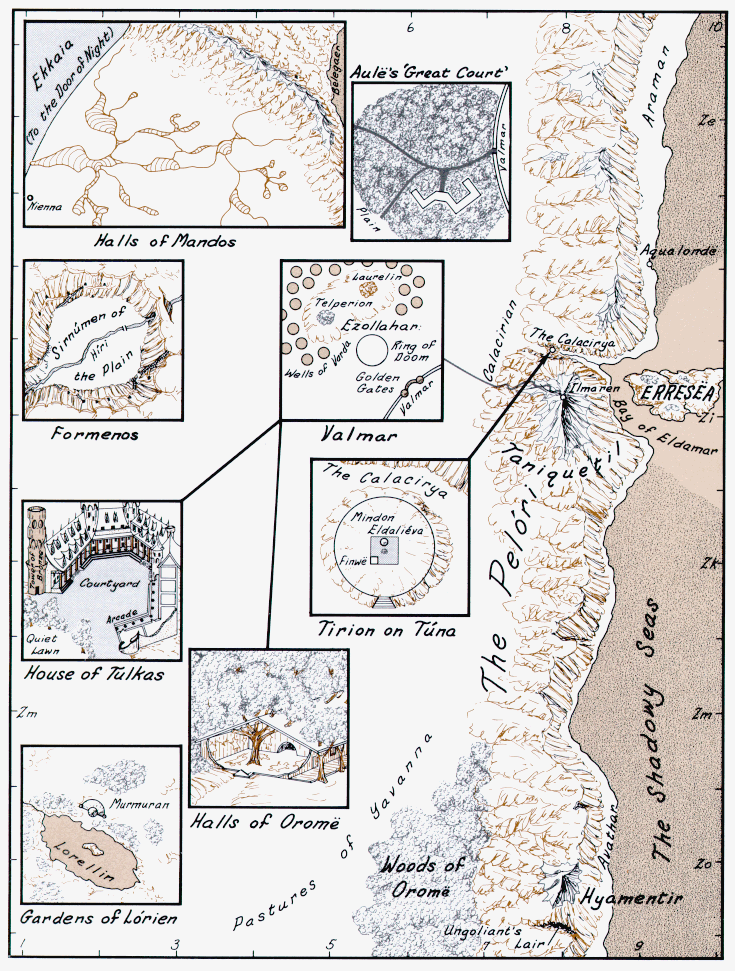 6
8
10
Ekkaia
(To the Door of Night)
Belegaer
Nienna
Halls of Mandos
Aulë's 'Great Court'
Valmar
Plain
Araman
Ze
Aqualondë
Sirnúmen of
Hiri
the Plain
Formenos
Laurelin
Telperion
Ezollahar:
Ring of
Doom
Wells of Varda
Golden
Gates
Valmar
Valmar
Calacirian
The Calacirya
Ilmaren
ERRESEA
Zi
Bay of Eldamar
Taniquetil
The Pelóri
The Calacirya
Mindon
Eldaliéva
Finwë
Tirion on Túna
Zk
Courtyard
Arcade
Quiet
Lawn
House of Tulkas
The Shadowy Seas
Zm
Zm
Halls of Oromë
Murmuran
Lorellin
Gardens of Lórien
Pastures of Yavanna
Woods of
Oromë
Avathar
Zo
Hyamentir
Ungoliant's
Lair
1
3
5
7
9